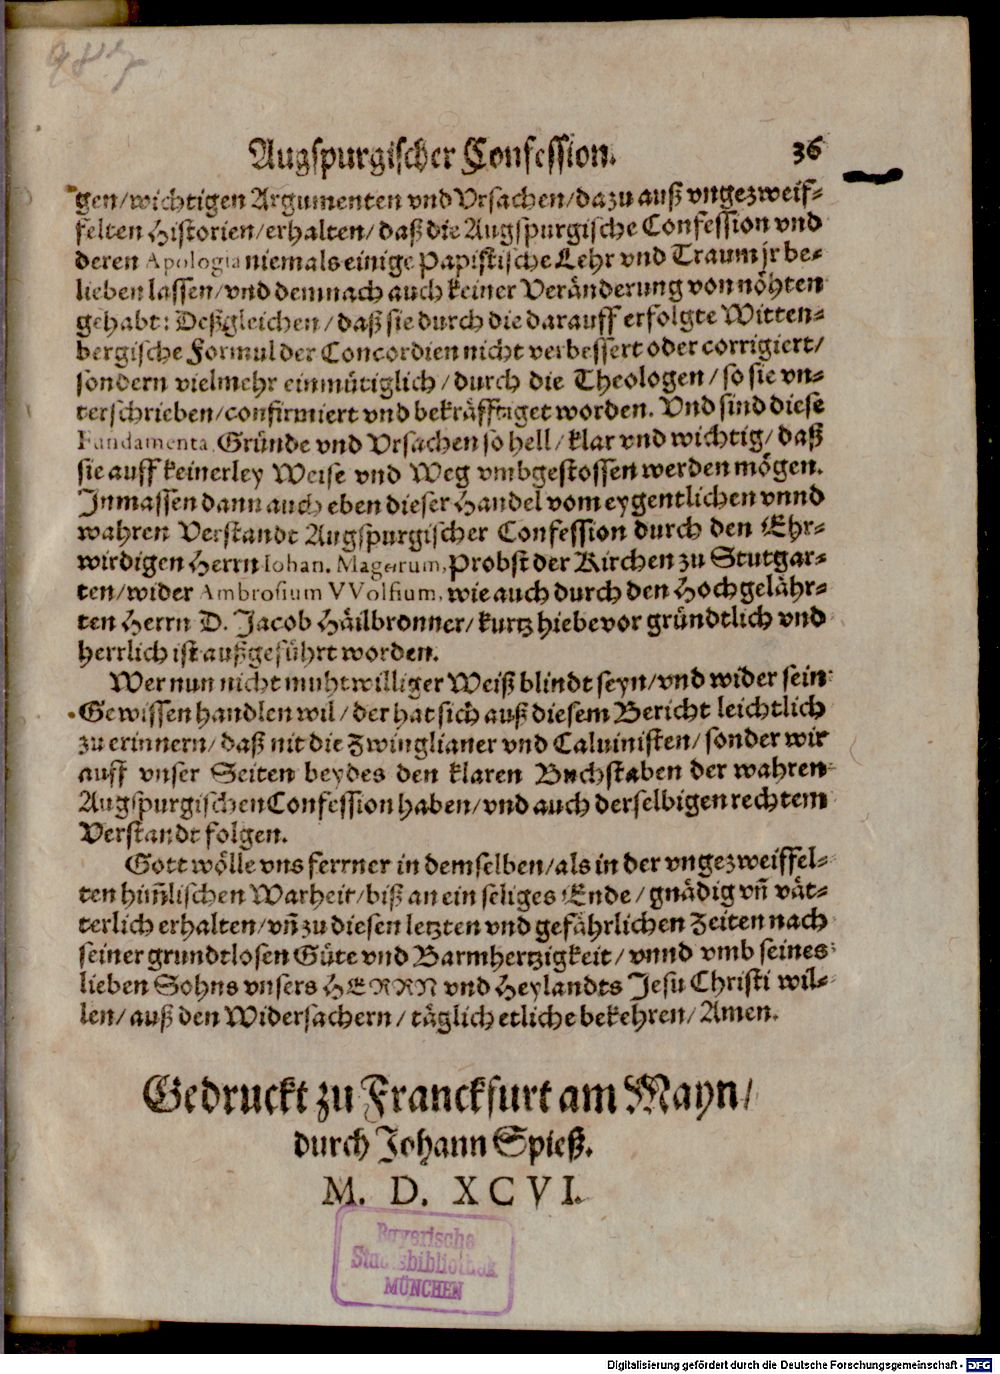 Augspurgischer Confession. 36
gen/wichtigen Argumenten vnd Vrsachen/dazu auß vngezweif-
felten Historien/erhalten/daß die Augspurgische Confession vnd
deren Apologia niemals einige Papistische Lehr vnd Traum jr be-
lieben lassen/vnd demnach auch keiner Veränderung von nöhten
gehabt: Deßgleichen/daß sie durch die darauff erfolgte Witten-
bergische Formul der Concordien nicht verbessert oder corrigiert/
sondern vielmehr einmütiglich/durch die Theologen/so sie vn-
terschrieben/confirmiert vnd bekräfftiget worden. Vnd sind diese
Fundamenta, Gründe vnd Vrsachen so hell/klar vnd wichtig/daß
sie auff keinerley Weise vnd Weg vmbgestossen werden mögen.
Inmassen dann auch eben dieser Handel vom eygentlichen vnnd
wahren Verstandt Augspurgischer Confession durch den Ehr-
wirdigen Herrn Iohan. Magerum, Probst der Kirchen zu Stutgar-
ten/wider Ambrosium VVolfium, wie auch durch den Hochgelähr-
ten Herrn D. Jacob Häilbronner/kurtz hiebevor gründtlich vnd
herrlich ist außgeführt worden.
Wer nun nicht muhtwilliger Weiß blindt seyn/vnd wider sein
Gewissen handlen wil/der hat sich auß diesem Bericht leichtlich
zu erinnern/daß nit die Zwinglianer vnd Caluinisten/sonder wir
auff vnser Seiten beydes den klaren Buchstaben der wahren
Augspurgischen Confession haben/vnd auch derselbigen rechtem
Verstandt folgen.
Gott wölle vns ferrner in demselben/als in der vngezweiffel-
ten him̃lischen Warheit/biß an ein seliges Ende/gnädig vñ vät-
terlich erhalten/vñ zu diesen letzten vnd gefährlichen Zeiten nach
seiner grundtlosen Güte vnd Barmhertzigkeit/vnnd vmb seines
lieben Sohns vnsers HERRN vnd Heylandts Jesu Christi wil-
len/auß den Widersachern/täglich etliche bekehren/Amen.
Gedruckt zu Franckfurt am Mayn/
durch Johann Spieß.
M. D. XCVI.
Bayerische
Staatsbibliothek
MÜNCHEN
Digitalisierung gefördert durch die Deutsche Forschungsgemeinschaft - DFG